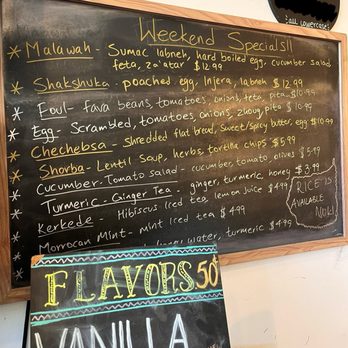 all lowercase!
Weekend Specials!!
* Malawah - Sumac labneh, hard boiled egg, cucumber salad
feta, za'atar $12.99
* Shakshuka - poached egg, injera, labneh $12.99
* Foul - fava beans, tomatoes, onions, teta, pita $10.99
* Egg - Scrambled, tomatoes, onions, zhoug, pita $10.99
* Chechebsa - shredded flat bread, sweet/spicy butter, egg $10.99
* Shorba - Lentil Soup, herbs, tortilla chips $5.99
* Cucumber Tomato salad - cucumber, tomato, olives $5.99
* Turmeric - Ginger Tea - ginger, turmeric, honey $3.99
* Kerkede - Hibiscus iced tea, lemon juice $4.99
* Morrocan Mint - mint iced tea $4.99
* water, turmeric $4.99
RICE IS
AVAILABLE
NOW!
FLAVORS 50¢
VANILLA